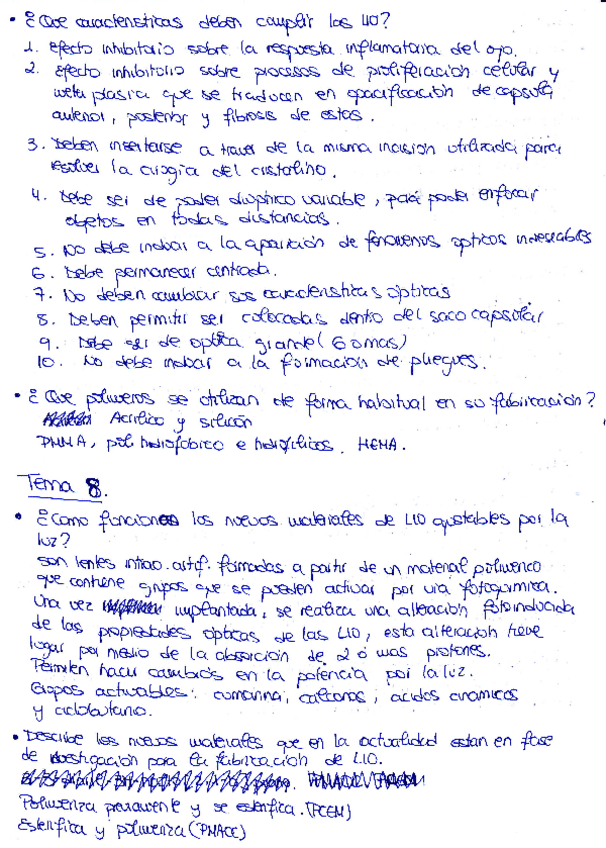 • ¿Que caracteristicas deben cumplir las LIO?
1. efecto inhibitorio sobre la respuesta inflamatoria del ojo.
2. efecto inhibitorio sobre procesos de proliferación celular y
metaplasia que se traducen en opacificación de capsula
anterior, posterior y fibrosis de estas.
3. Deben insertarse a traves de la misma incisión utilizada para
resolver la cirugía del cristalino.
4. Debe ser de poder dioptrico variable, para poder enfocar
objetos en todas distancias.
5. No debe inducir a la aparición de fenomenos opticos indeseables
6. Debe permanecer centrada.
7. No deben cambiar sus caracteristicas ópticas
8. Deben permitir ser colocadas dentro del saco capsular
9. Debe ser de optica grande (6 o mas)
10. No debe inducir a la formación de pliegues.
• ¿Que polimeros se utilizan de forma habitual en su fabricación?
Acrilico y silicón
PMMA, poli. hidrofóbico e hidrofilicos. HEMA.
Tema 8.
• ¿Como funcionan los nuevos materiales de LIO ajustables por la
luz?
Son lentes intrao. artif. formadas a partir de un material polimerico
que contiene grupos que se pueden activar por via fotoquimica.
Una vez implantada, se realiza una alteración fotoinducida
de las propiedades ópticas de las LIO, esta alteración tiene
lugar por medio de la absorción de 2 ó mas protones.
Permiten hacer cambios en la potencia por la luz.
Grupos activables: cumarina, calconas, acidos cinamicos
y ciclobutano.
• Describe los nuevos materiales que en la actualidad estan en fase
de investigación para la fabricación de LIO.
Polimeriza previamente y se esterifica. (PCEM)
Esterifica y polimeriza (PMACC)